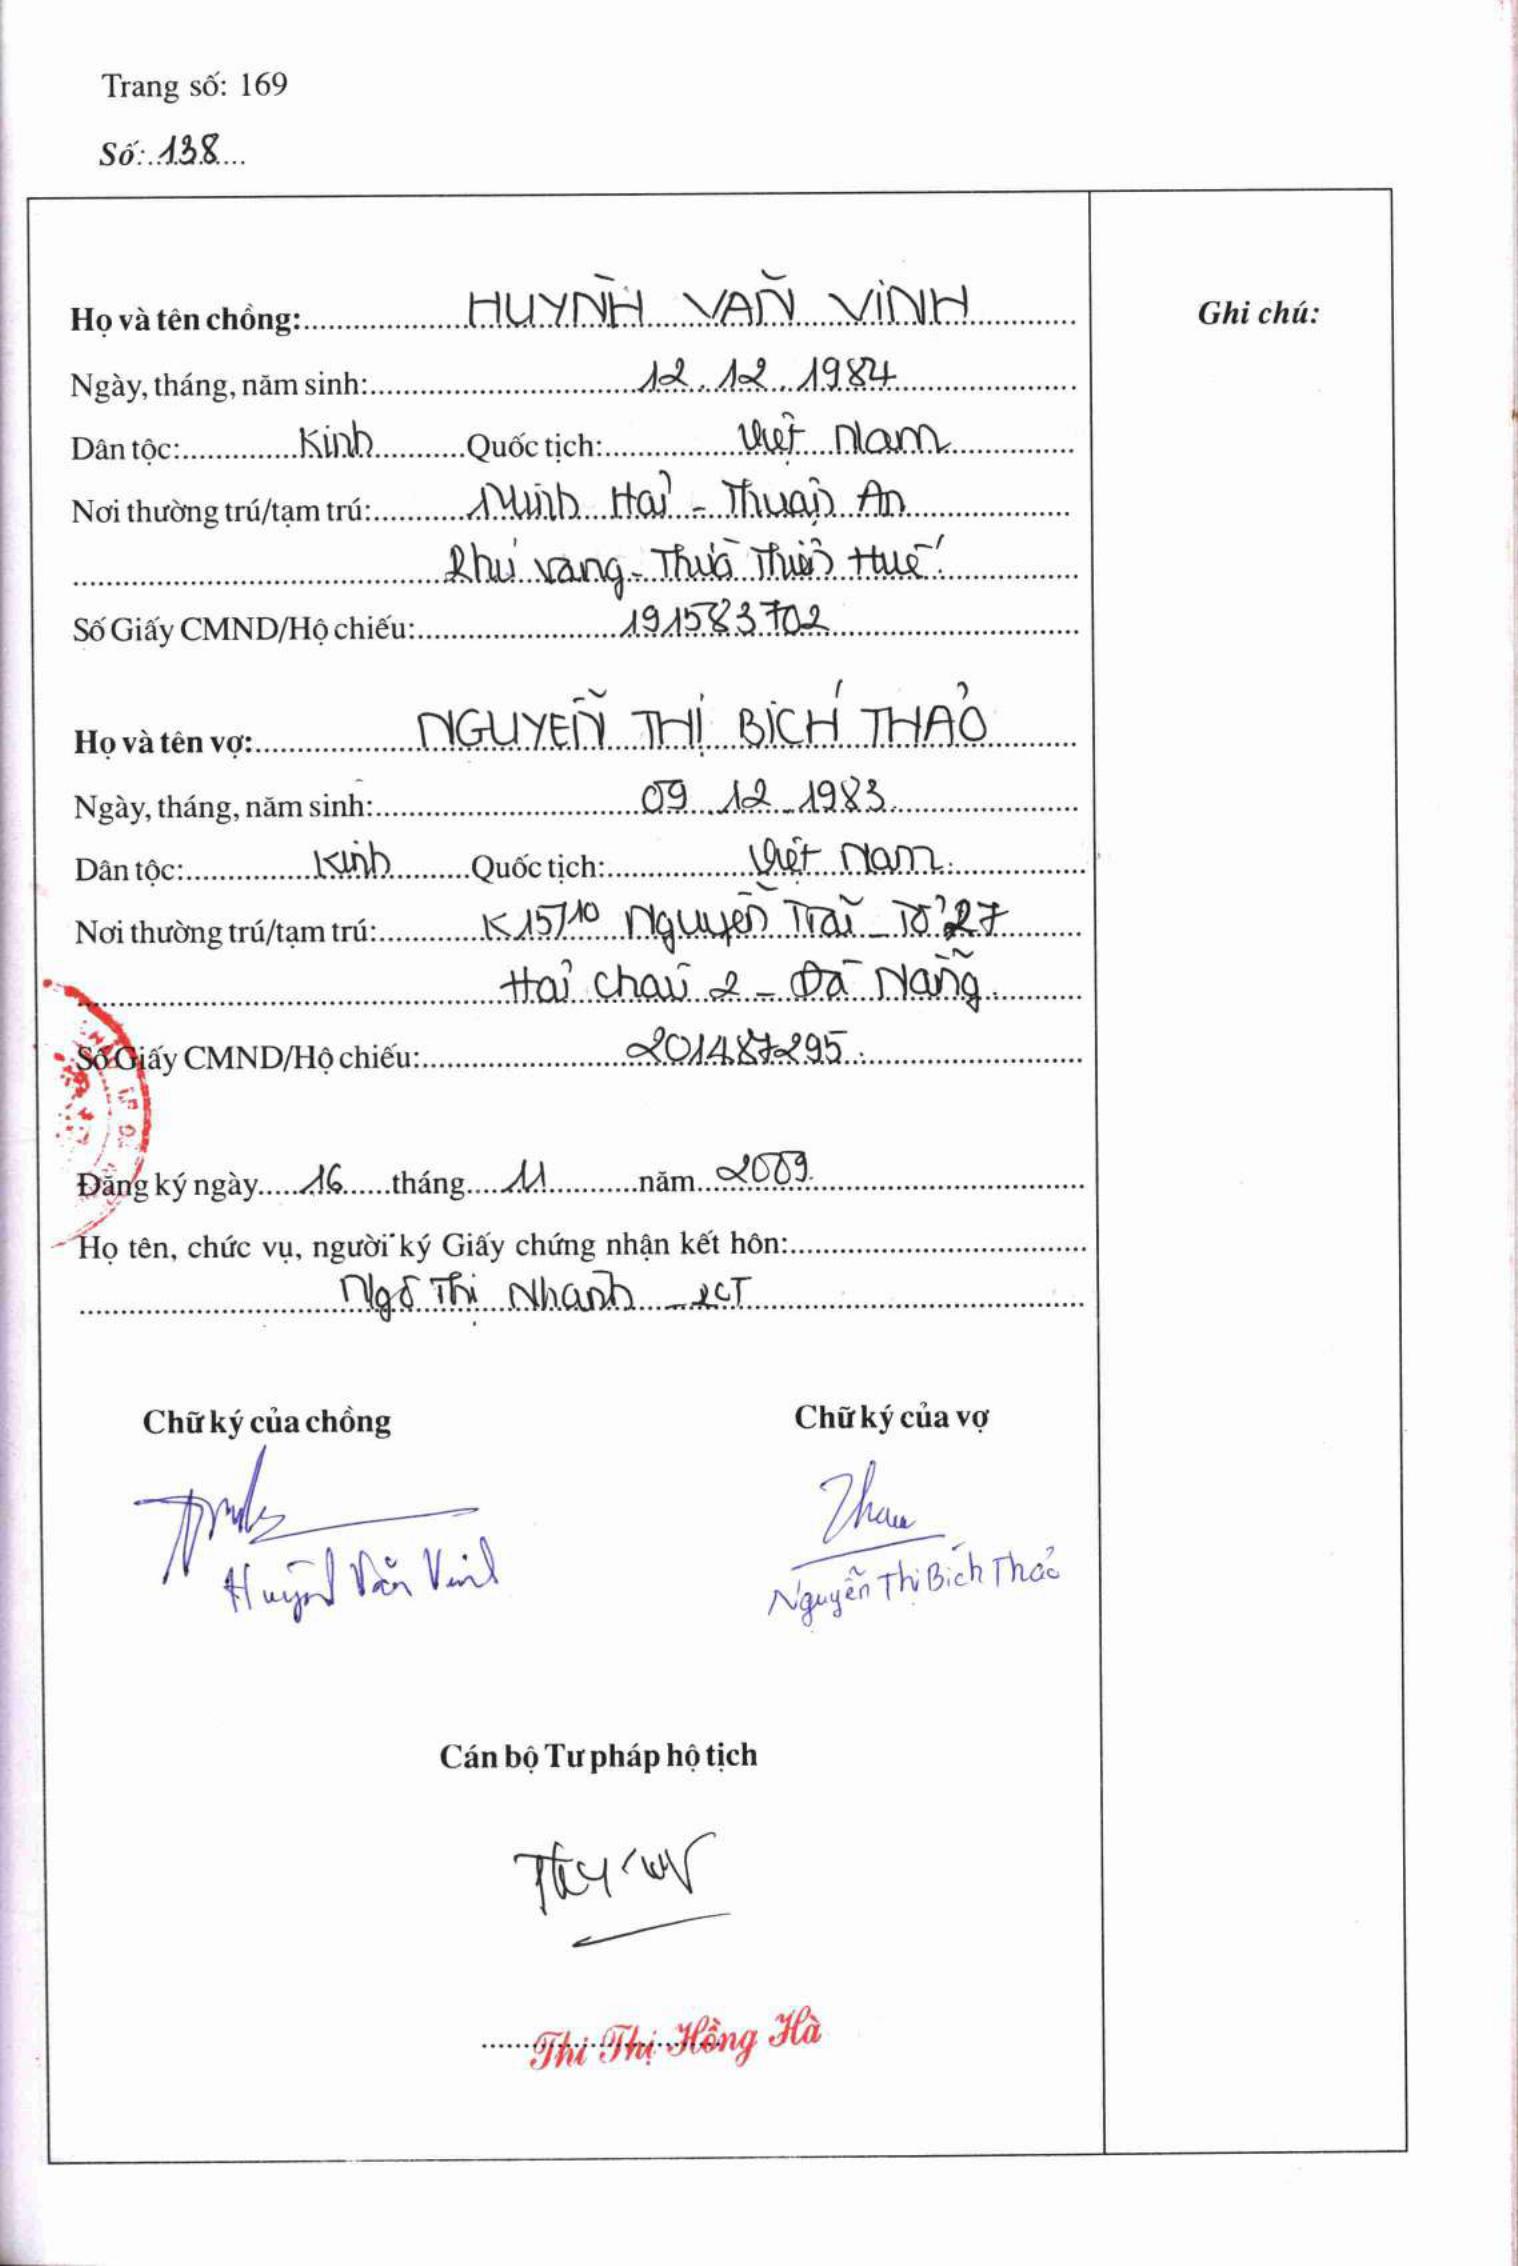 Trang số: 169
Số: 138
Họ và tên chồng: HUỲNH VĂN VINH
Ghi chú:
Ngày, tháng, năm sinh: 12.12.1984
Dân tộc: Kinh Quốc tịch: Việt Nam
Nơi thường trú/tạm trú: Minh Hải - Thuận An
Phú Vang - Thừa Thiên Huế
Số Giấy CMND/Hộ chiếu: 191583702
Họ và tên vợ: NGUYỄN THỊ BÍCH THẢO
Ngày, tháng, năm sinh: 09.12.1983
Dân tộc: Kinh Quốc tịch: Việt Nam
Nơi thường trú/tạm trú: K15/10 Nguyễn Trãi - Tổ 27
Hải Châu 2 - Đà Nẵng
Số Giấy CMND/Hộ chiếu: 201487295
Đăng ký ngày 16 tháng 11 năm 2009
Họ tên, chức vụ, người ký Giấy chứng nhận kết hôn:
Ngô Thị Nhanh - PCT
Chữ ký của chồng Chữ ký của vợ
Thao
Huỳnh Văn Vinh Nguyễn Thị Bích Thảo
Cán bộ Tư pháp hộ tịch
Thi Thị Hồng Hà